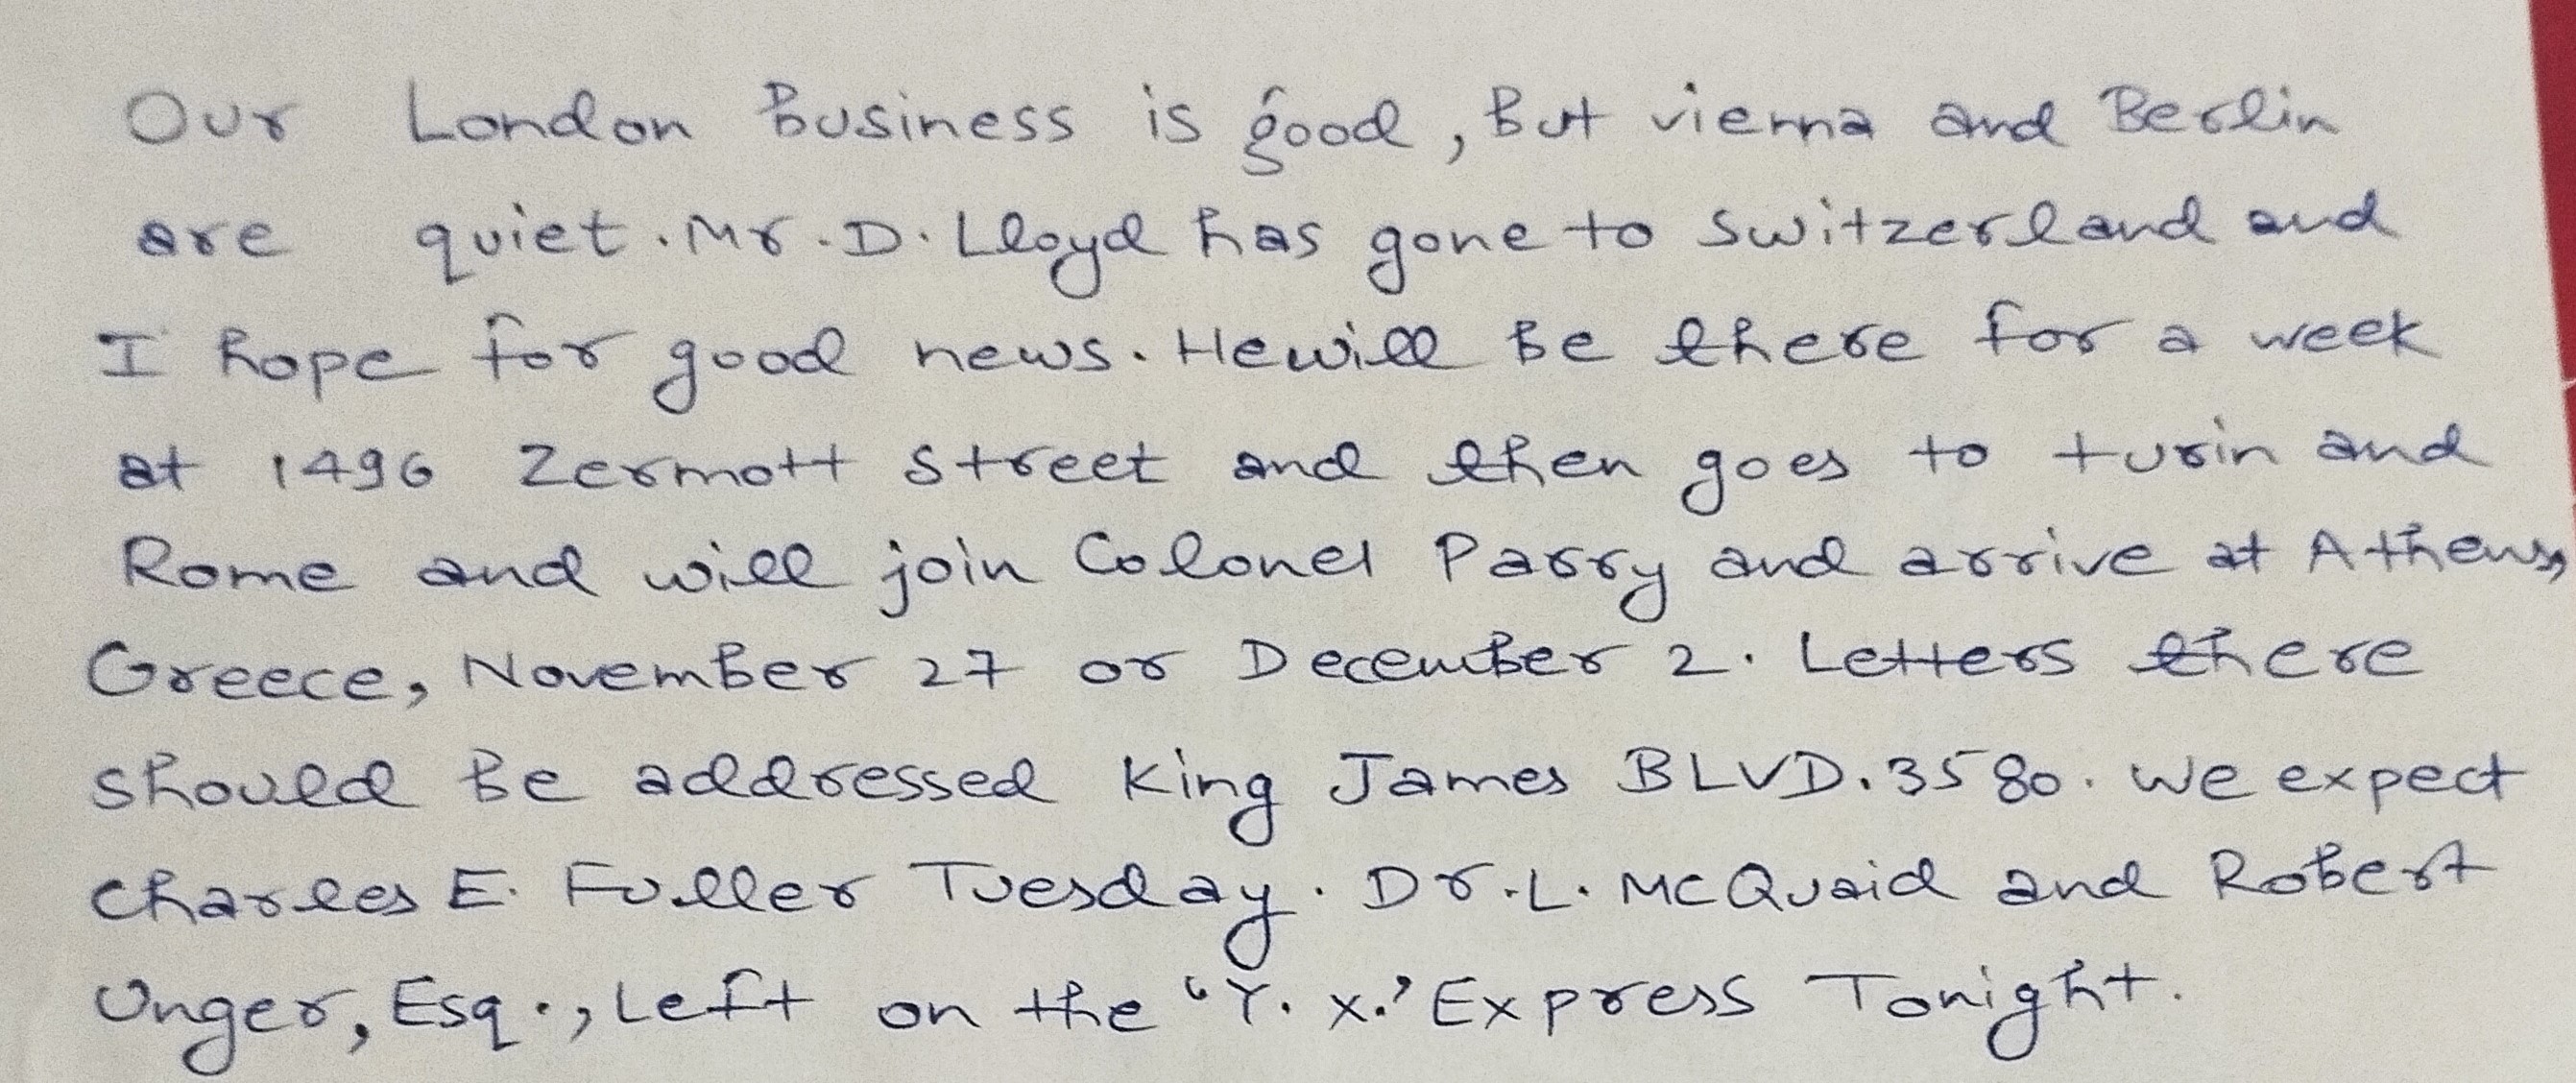 Our London Business is good, But vienna and Berlin
are quiet. Mr. D. Lloyd has gone to switzerland and
I hope for good news. He will Be there for a week
at 1496 Zermott street and then goes to turin and
Rome and will join Colonel Parry and arrive at Athens,
Greece, November 27 or December 2. Letters there
should be addressed King James BLVD. 3580. We expect
Charles E. Fuller Tuesday. Dr. L. McQuaid and Robert
Unger, Esq., Left on the 'Y. X.' Express Tonight.